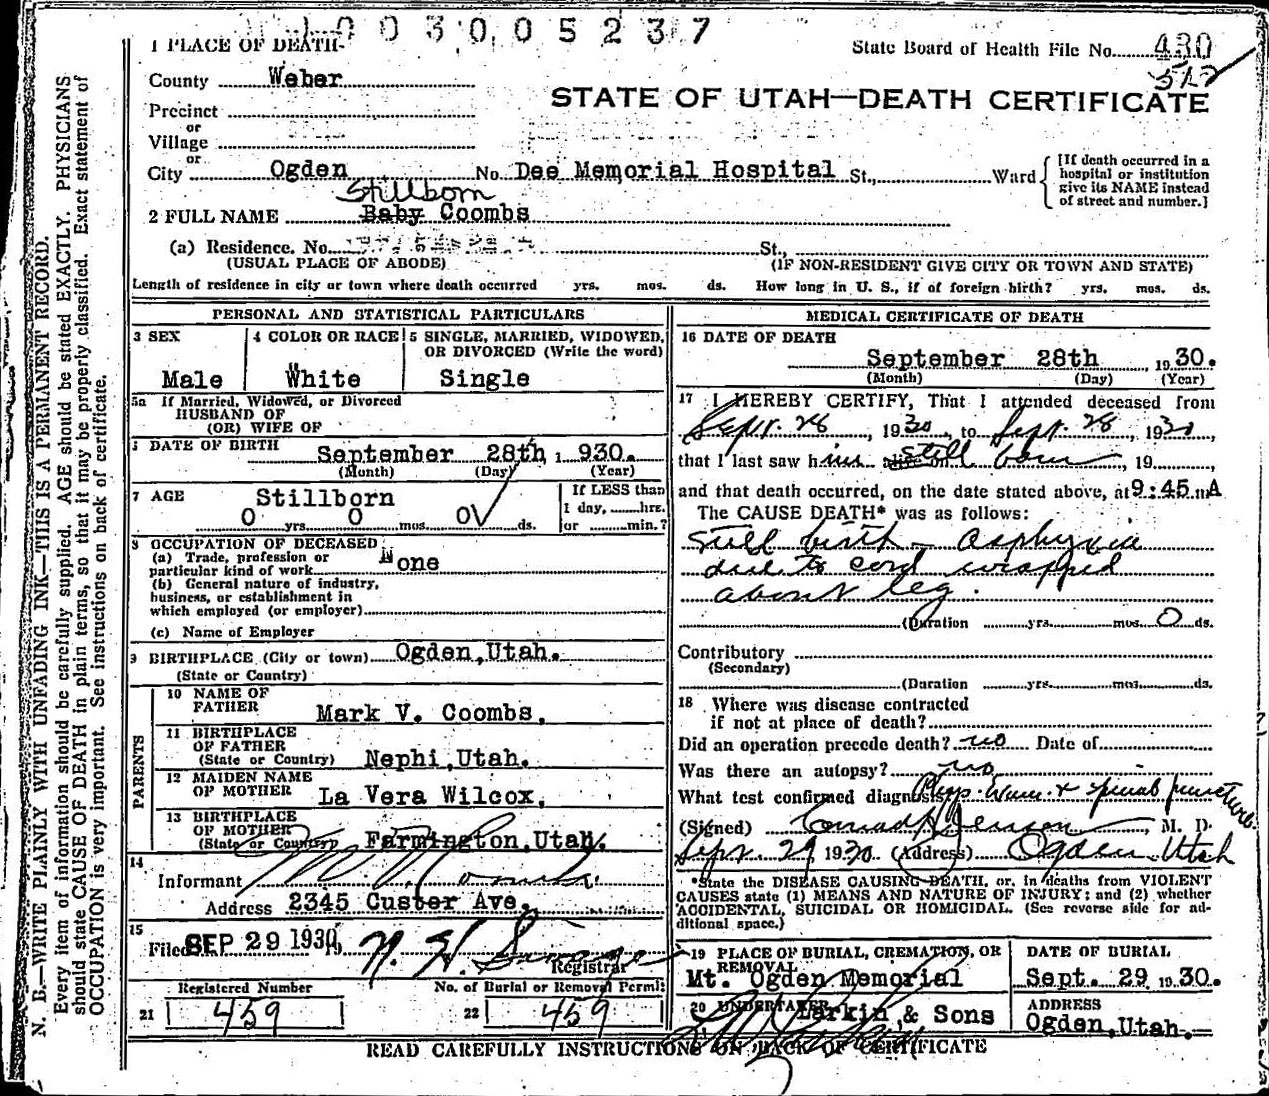 003005237
1 PLACE OF DEATH-
State Board of Health File No. 430
512
County Weber
STATE OF UTAH—DEATH CERTIFICATE
Precinct
or
Village
or
City Ogden No. Dee Memorial Hospital St., Ward
[If death occurred in a hospital or institution give its NAME instead of street and number.]
Stillborn
2 FULL NAME Baby Coombs
(a) Residence. No. St.,
(USUAL PLACE OF ABODE) (IF NON-RESIDENT GIVE CITY OR TOWN AND STATE)
Length of residence in city or town where death occurred yrs. mos. ds. How long in U. S., if of foreign birth? yrs. mos. ds.
PERSONAL AND STATISTICAL PARTICULARS
3 SEX
Male
4 COLOR OR RACE
White
5 SINGLE, MARRIED, WIDOWED,
OR DIVORCED (Write the word)
Single
5a If Married, Widowed, or Divorced
HUSBAND OF
(OR) WIFE OF
DATE OF BIRTH
September 28th, 1930.
(Month) (Day) (Year)
7 AGE Stillborn
0 yrs. 0 mos. 0 ds.
If LESS than
1 day, hrs.
or min.?
8 OCCUPATION OF DECEASED
(a) Trade, profession or
particular kind of work None
(b) General nature of industry,
business, or establishment in
which employed (or employer)
(c) Name of Employer
9 BIRTHPLACE (City or town) Ogden, Utah.
(State or Country)
PARENTS
10 NAME OF
FATHER Mark V. Coombs.
11 BIRTHPLACE
OF FATHER
(State or Country) Nephi, Utah.
12 MAIDEN NAME
OF MOTHER La Vera Wilcox.
13 BIRTHPLACE
OF MOTHER
(State or Country) Farmington, Utah.
14
Informant M V Coombs.
Address 2345 Custer Ave.
15
Filed SEP 29 1930, 19
Registrar
Registered Number
21 459
No. of Burial or Removal Permit
22 459
MEDICAL CERTIFICATE OF DEATH
16 DATE OF DEATH
September 28th, 1930.
(Month) (Day) (Year)
17 I HEREBY CERTIFY, That I attended deceased from
Sept. 28, 1930, to Sept. 28, 1930,
that I last saw him alive on still born, 19,
and that death occurred, on the date stated above, at 9:45 m A
The CAUSE DEATH* was as follows:
Still birth - Asphyxia
due to cord wrapped
about leg.
(Duration yrs. mos. 0 ds.
Contributory
(Secondary)
(Duration yrs. mos. ds.
18 Where was disease contracted
if not at place of death?
Did an operation precede death? no Date of
Was there an autopsy? no
What test confirmed diagnosis? Phys. Exam. & spinal puncture
(Signed) Conrad H Jenson, M. D.
Sept. 29, 1930 (Address) Ogden Utah
*State the DISEASE CAUSING DEATH, or, in deaths from VIOLENT
CAUSES state (1) MEANS AND NATURE OF INJURY; and (2) whether
ACCIDENTAL, SUICIDAL OR HOMICIDAL. (See reverse side for ad-
ditional space.)
19 PLACE OF BURIAL, CREMATION, OR
REMOVAL
Mt. Ogden Memorial
DATE OF BURIAL
Sept. 29 1930.
20 UNDERTAKER Larkin & Sons
ADDRESS
Ogden, Utah.
READ CAREFULLY INSTRUCTIONS ON BACK OF CERTIFICATE
N. B.—WRITE PLAINLY WITH UNFADING INK—THIS IS A PERMANENT RECORD.
Every item of information should be carefully supplied. AGE should be stated EXACTLY. PHYSICIANS
should state CAUSE OF DEATH in plain terms, so that it may be properly classified. Exact statement of
OCCUPATION is very important. See instructions on back of certificate.